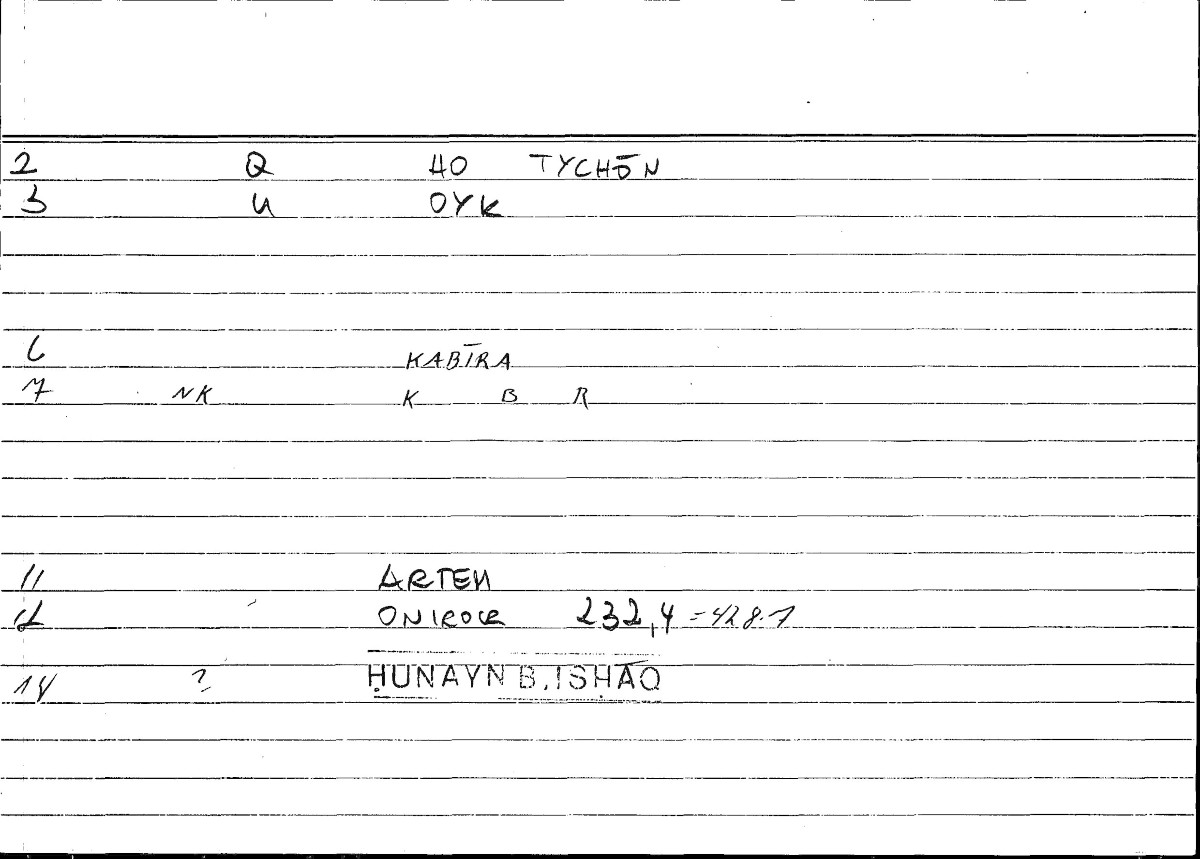 2 Q HO TYCHŌN
3 U OYK
6 KABĪRA
7 NK K B R
11 ARTEM
12 ONIROCR 232,4 = 428.7
14 ? ḤUNAYN B. ISḤĀQ